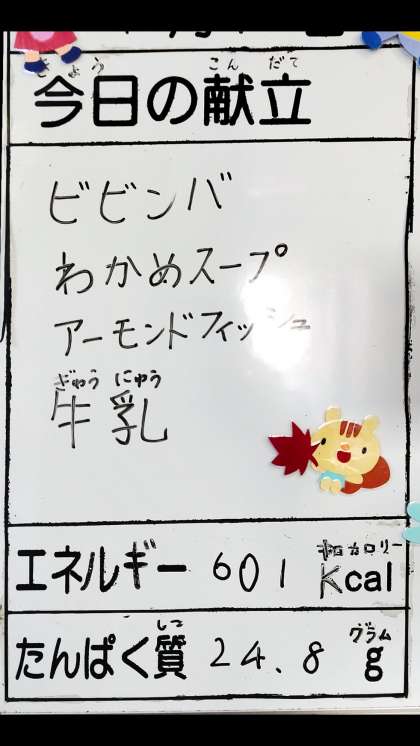 きょう こんだて
今日の献立
ビビンバ
わかめスープ
アーモンドフィッシュ
ぎゅうにゅう
牛乳
キロカロリー
エネルギー 601 Kcal
しつ グラム
たんぱく質 24.8 g